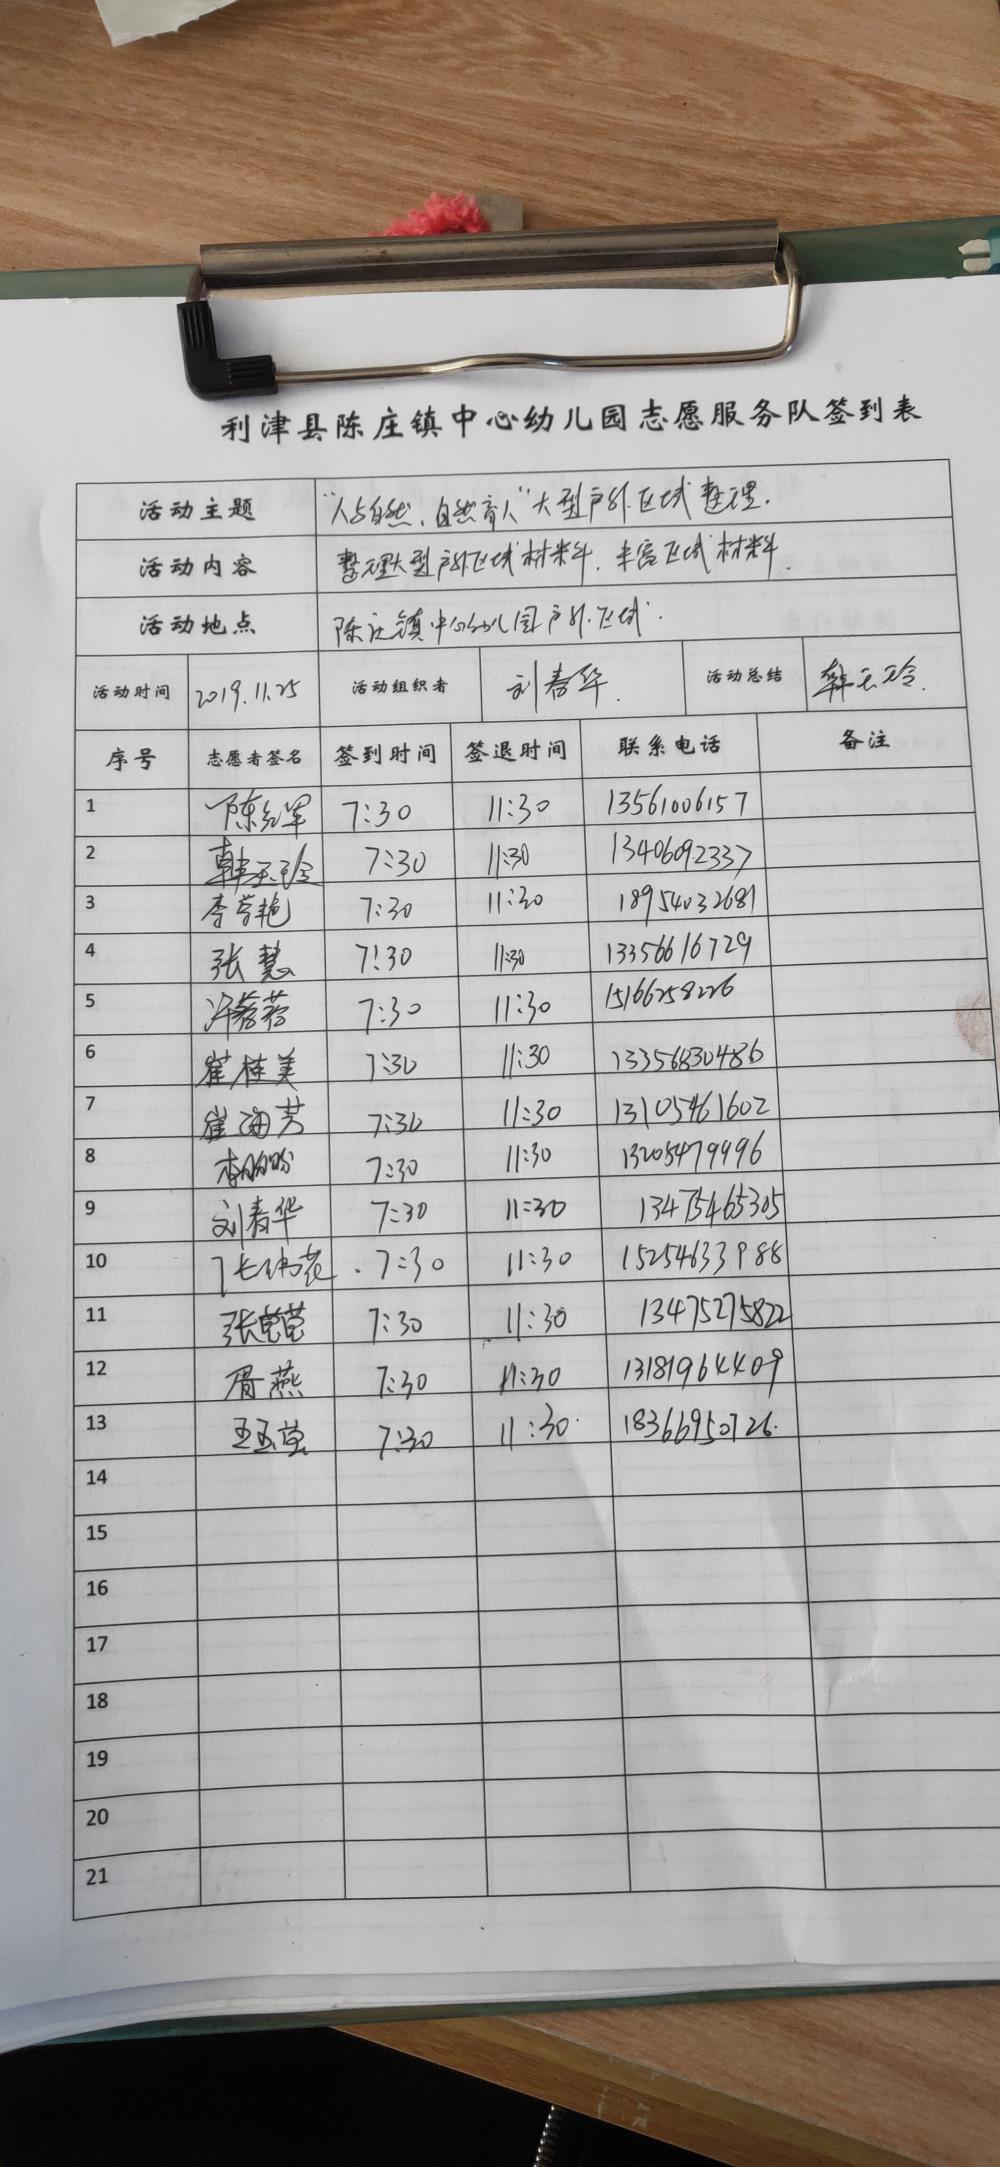 利津县陈庄镇中心幼儿园志愿服务队签到表
活动主题 "人与自然、自然育人"大型户外区域整理.
活动内容 整理大型户外区域材料、丰富区域材料.
活动地点 陈庄镇中心幼儿园户外区域.
活动时间 2019.11.25 活动组织者 刘春华. 活动总结 韩玉玲.
序号 志愿者签名 签到时间 签退时间 联系电话 备注
1 陈红军 7:30 11:30 13561006157
2 韩玉玲 7:30 11:30 13406092337
3 李芳艳 7:30 11:30 18954032681
4 张慧 7:30 11:30 13356616729
5 许蓉蓉 7:30 11:30 15166258226
6 崔桂美 7:30 11:30 13356830486
7 崔海芳 7:30 11:30 13105461602
8 李盼盼 7:30 11:30 13205479996
9 刘春华 7:30 11:30 13475465305
10 张伟花 7:30 11:30 15254633988
11 张莹莹 7:30 11:30 13475275822
12 胥燕 7:30 11:30 13181964409
13 王玉莹 7:30 11:30 18366950726
14
15
16
17
18
19
20
21